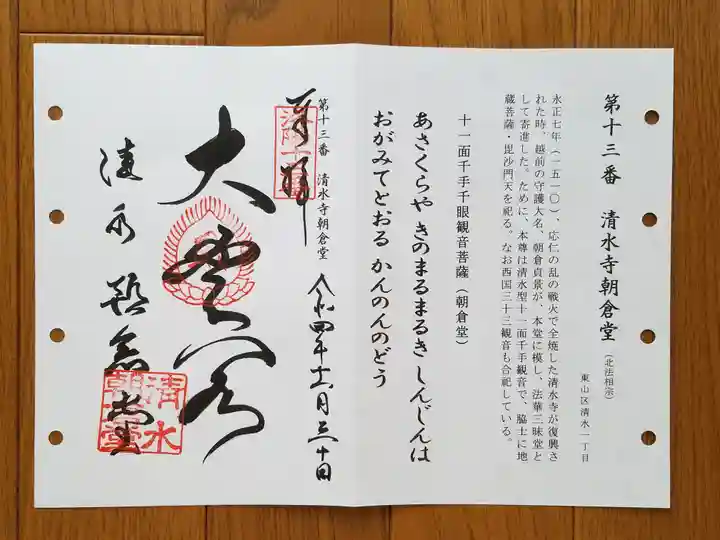 第十三番 清水寺朝倉堂(北法相宗)
東山区清水一丁目
永正七年(一五一〇)、応仁の乱の戦火で全焼した清水寺が復興さ
れた時、越前の守護大名、朝倉貞景が、本堂に模し、法華三昧堂と
して寄進した。ために、本尊は清水型十一面千手観音で、脇士に地
蔵菩薩・毘沙門天を祀る。なお西国三十三観音も合祀している。
十一面千手千眼観音菩薩(朝倉堂)
あさくらや きのまるまるき しんじんは
おがみてとおる かんのんのどう
第十三番 清水寺朝倉堂
奉拝
洛陽十三番
令和四年十一月三十日
大悲閣
清水朝倉堂
清水
朝倉堂